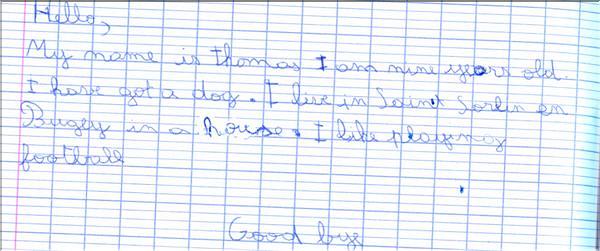 Hello,
My name is thomas I am nine years old.
I have got a dog. I live in Saint Sorlin en
Bugey in a house. I like playing
football
Good bye